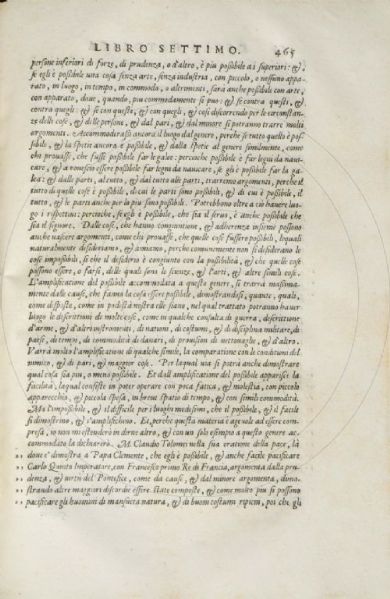 LIBRO SETTIMO. 465
persone inferiori di forze, di prudenza, o d'altro, è più possibile a i superiori: &,
se egli è possibile una cosa senza arte, senza industria, con piccolo, o nessuno appa-
rato, in luogo, in tempo, in commodo, o altrimenti, sarà anche possibile con arte,
con apparato, dove, quando, più commodamente si può: & se contra questi, &
contra quegli: & se con questi, & con quegli, & così discorrendo per le circostan-
ze delle cose, & delle persone, & dal pari, & dal minore si potranno trarre molti
argomenti. Accommoderassi ancora il luogo dal genere, perche se tutto quello è possi-
bile, & la spetie ancora è possibile, & dalla spetie al genere similmente, come
chi provasse, che fusse possibile far le galee: percioche possibile è far legni da navi-
care, & a rovescio essere possibile far legni da navicare, se gli è possibile far la ga-
lea: & dalle parti, al tutto, & dal tutto alle parti, trarremo argomenti, perche il
tutto di quelle cose è possibile, di cui le parti sono possibili, & di cui è possibile, il
tutto, & le parti anche per lo più sono possibili. Potrebbono oltre a ciò havere luo-
go i rispettivi: percioche, se egli è possibile, che sia il servo, è anche possibile che
sia il signore. Dalle cose, che hanno congiuntione, & adherenza insieme possono
anche nascere argomenti, come chi provasse, che quelle cose fussero possibili, lequali
naturalmente desideriamo, & amiamo, perche comunemente non si desiderano le
cose impossibili, se che il desiderio è congiunto con la possibilità, & che quelle cose
possino essere, o farsi, delle quali sono le scienze, & l'arti, & altre simili cose.
L'amplificatione del possibile accommodata a questo genere, si trarrà massima-
mente dalle cause, che fanno la cosa essere possibile, dimostrandosi, quante, quali,
come disposte, come in podestà nostra elle siano, nel qual trattato potranno haver
luogo le descrittioni de molte cose, come in qualche consulta di guerra, descrittione
d'arme, & d'altri instromenti, di nationi, di costumi, & di disciplina militare, di
paesi, di tempi, di commodità di danari, de provision di vettovaglie, & d'altro.
Varrà molto l'amplificatione di qualche simile, la comparatione con le conditioni del
nimico, & di pari, & maggior cose. Per laqual via si potrà anche dimostrare
qual cosa sia più, o meno possibile. Et dall'amplificatione del possibile apparisce la
facilità, laqual consiste in poter operare con poca fatica, & molestia, con piccolo
apparecchio, & piccola spesa, in breve spatio di tempo, & con simili commodità.
Ma l'impossibile, & il difficile per i luoghi medesimi, che il possibile, & il facile
si dimostrano, & s'amplifichino. Et perche questa materia è agevole ad essere com-
presa, io non mi estenderò in dirne altro, & con un solo esempio a questo genere ac-
commodato la dichiarerò. M. Claudio Tolomei nella sua oratione della pace, là
dove e' dimostra a Papa Clemente, che egli è possibile, & anche facile pacificare
Carlo Quinto Imperatore, con Francesco primo Re di Francia, argomenta dalla pru-
denza, & virtù del Pontefice, come da cause, & dal minore argomenta, dimo-
strando altre maggiori discordie essere state composte, & come molto più si possino
pacificare gli huomini di mansueta natura, & di buoni costumi ripieni, poi che gli